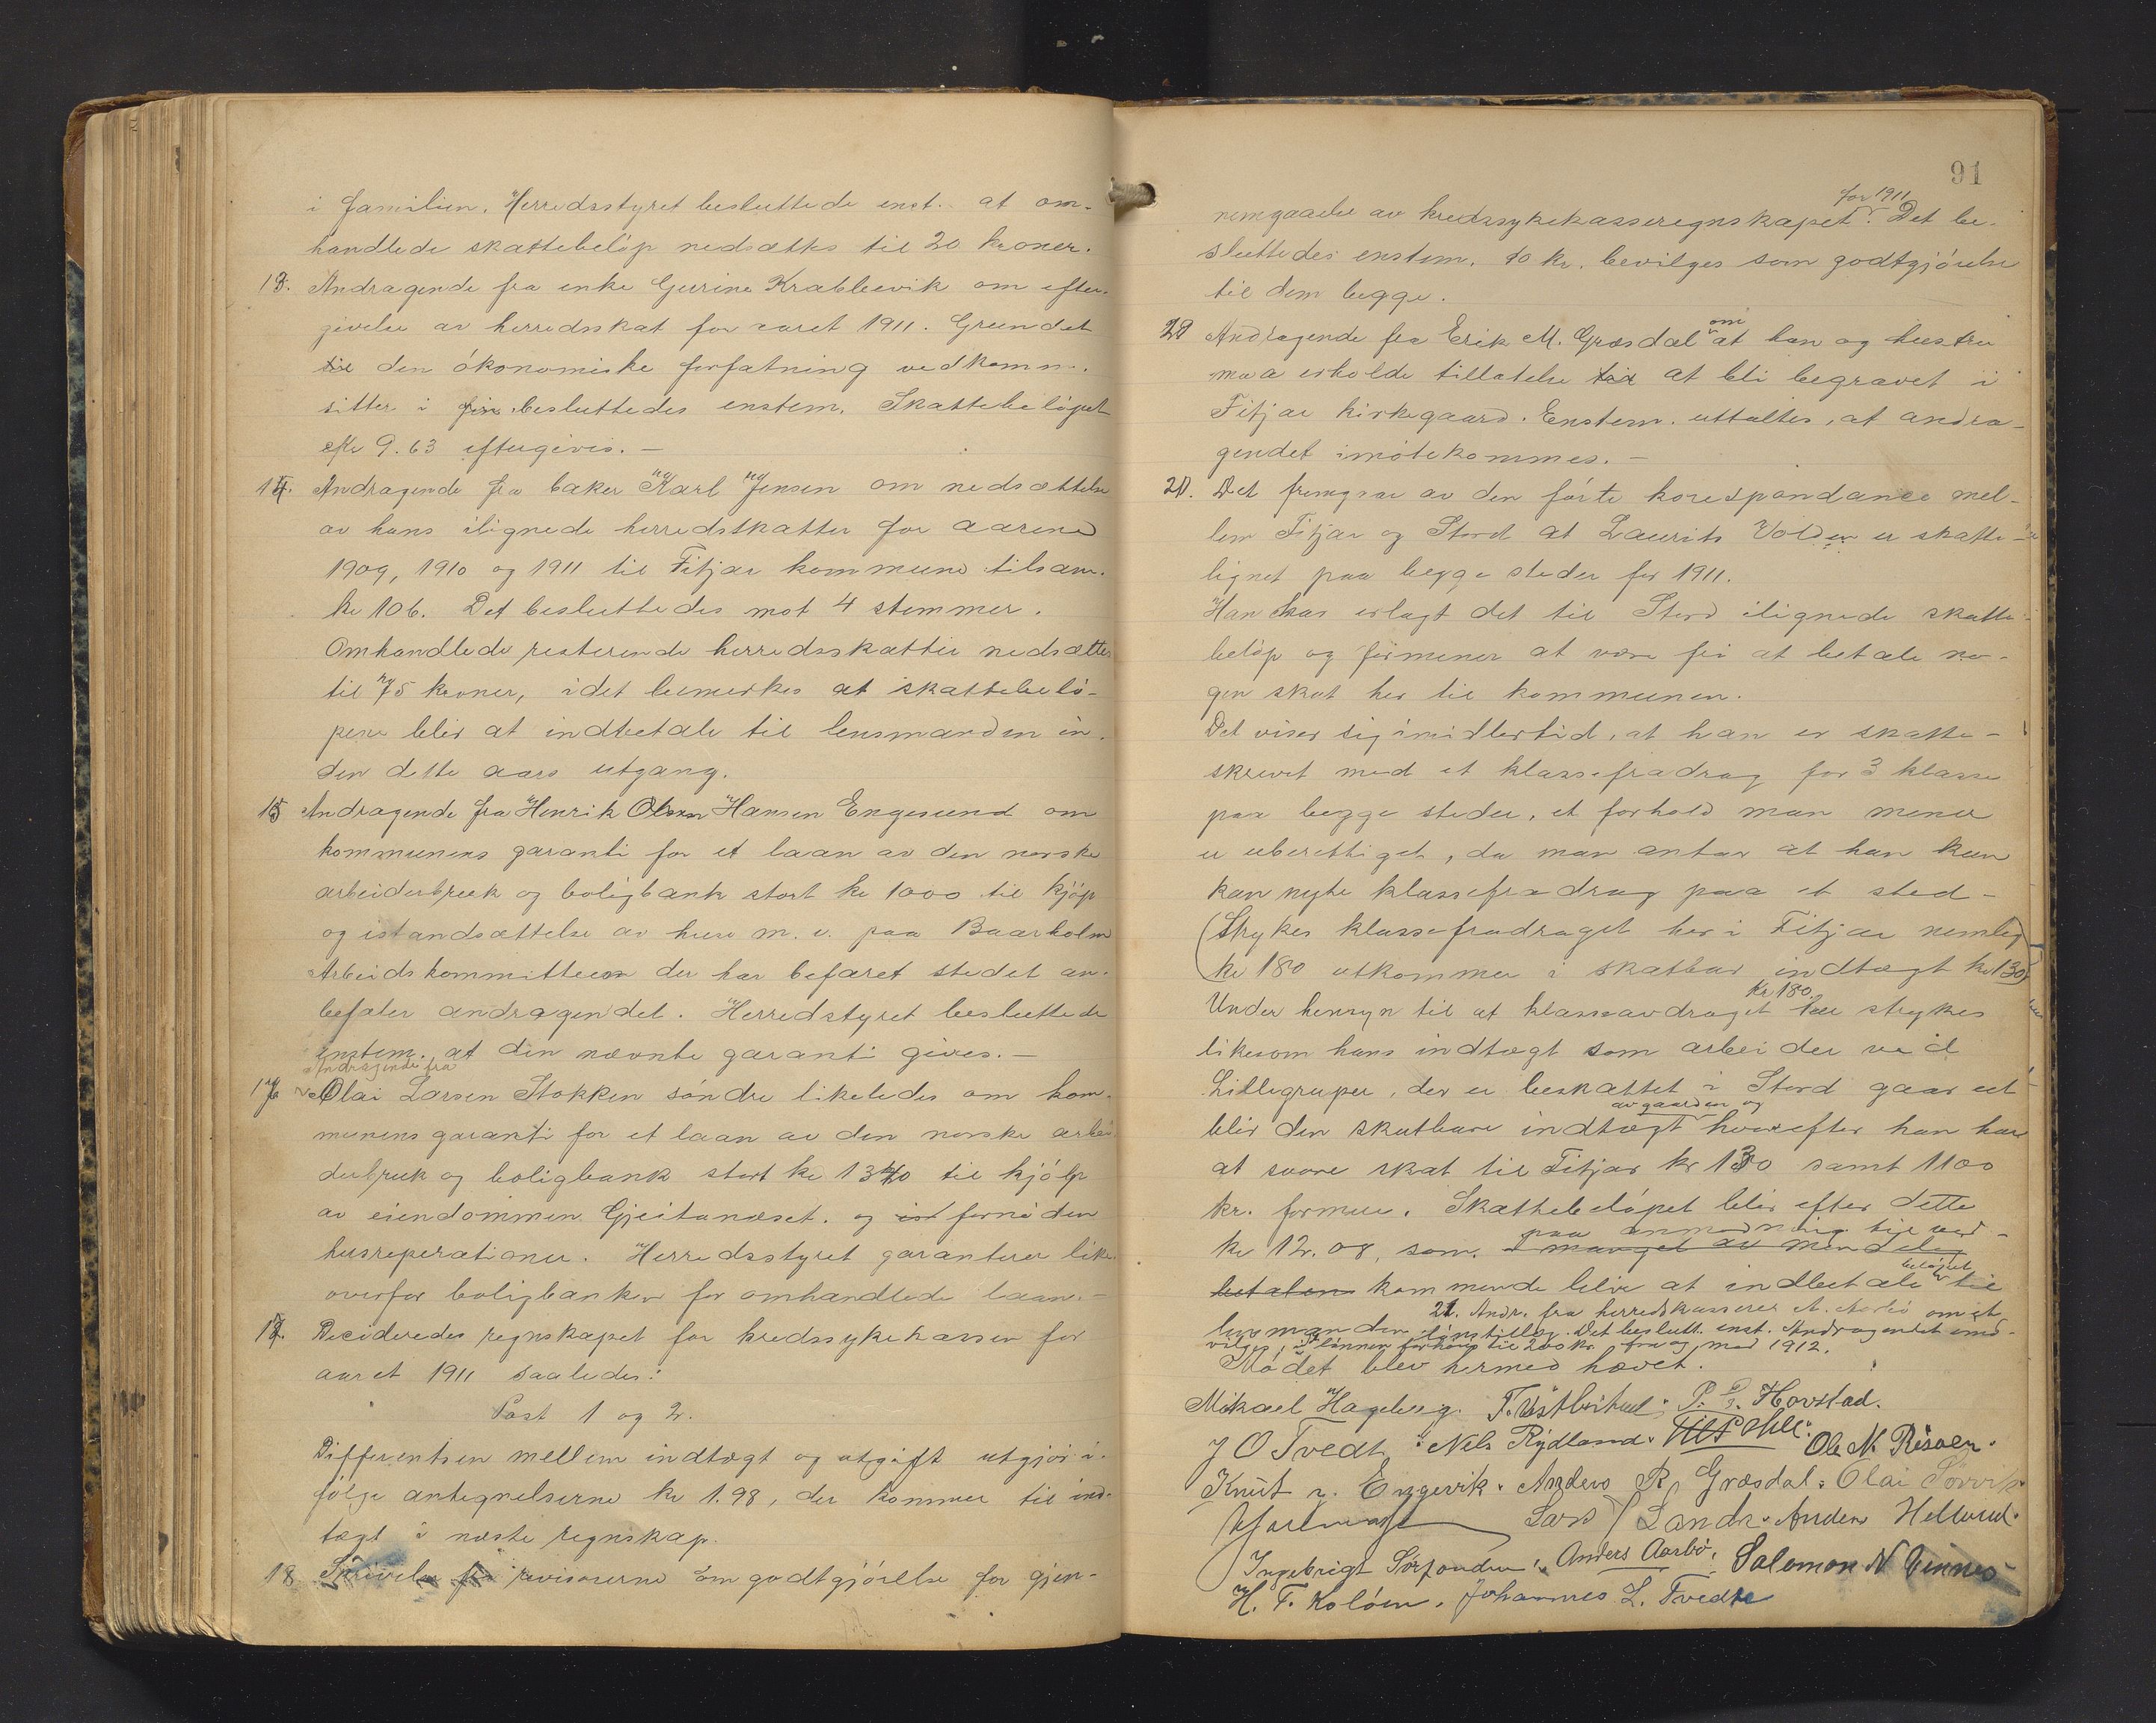 i familien. Herredsstyret besluttede enst. at om-
handlede skattebeløp nedsættes til 20 kroner.
13. Andragende fra enke Gurine Krabbevik om efter-
givelse av herredsskat for aaret 1911. Grundet
den økonomiske forfatning vedkomm.
sitter i besluttedes enstem. Skattebeløpet
kr 9.63 eftergives. —
14. Andragende fra baker Karl Jensen om nedsættelse
av hans ilignede herredskatter for aarene
1909, 1910 og 1911 til Fitjar kommune tilsam.
kr 106. Det besluttedes mot 4 stemmer.
Omhandlede resterende herredsskatter nedsættes
til 75 kroner, idet bemerkes at skattebelø-
pene blir at indbetale til lensmanden in-
den dette aars utgang.
15 Andragende fra Henrik Olsen Hansen Engesund om
kommunens garanti for et laan av den norske
arbeiderbruk og boligbank stort kr 1000 til kjøp
og istandsættelse av huse m. v. paa Baarholm
Arbeidskommitteen der har befaret stedet an-
befaler andragendet. Herredstyret besluttede
enstem. at den nævnte garanti gives. —
Andragende fra
16 Olai Larsen Stokken søndre likeledes om kom-
munens garanti for et laan av den norske arbei-
derbruk og boligbank stort kr 1340 til kjølp
av eiendommen Gjeitanæset. og fornøden
husreperationer. Herredsstyret garanterer like
overfor boligbanken for omhandlede laan. —
17. Decideredes regnskapet for kredssykekassen for
aaret 1911 saaledes:
Post 1 og 2.
Differentsen mellem indtægt og utgift utgjør i-
følge antegnelserne kr 1.98, der kommer til ind-
tægt i næste regnskap.
18 Skrivelse fra revisorerne om godtgjørelse for gjen-
91
for 1911
nemgaaelse av kredssykekasseregnskapet. Det be-
sluttedes enstem. 10 kr. bevilges som godtgjørelse
til dem begge.
om
Andragende fra Erik M. Græsdal at han og hustru
maa erholde tillatelse til at bli begravet i
Fitjar kirkegaard. Enstem. uttaltes, at andra-
gendet imøtekommes. —
20. Det fremgaar av den førte korespondance mel-
lem Fitjar og Stord at Laurits Volden er skatte-
lignet paa begge steder for 1911.
Han har erlagt det til Stord ilignede skatte-
beløp og formener at være fri at betale no-
gen skat her til kommunen.
Det viser sig imidlertid, at han er skatte-
skrevet med et klassefradrag for 3 klasse
paa begge steder, et forhold man mener
er uberettiget, da man antar at han kun
kan nyte klassefradrag paa et sted -
(Strykes klassefradraget her i Fitjar nemleg
kr 180 utkommer i skatbar indtægt kr 130)
kr 180
Under hensyn til at klasseavdraget her strykes
likesom hans indtægt som arbeider ved
Lillegruper, der er beskattet i Stord gaar ut
av gaarden og
blir den skatbare indtægt hvorefter han har
at svare skat til Fitjar kr 130 samt 1100
kr. formue. Skattebeløpet blir efter dette
paa anmodning til ved-
kr 12.08, som i mangel av mindelig
beløpet
betalen kommende blir at indbetale til
21. Andr. fra herredskasserer A. Aarbø om et
lensmanden lønstillæg. Det beslutt. enst. Andragendet ind-
vilges, lønnen forhøies til 200 kr. fra og med 1912.
Mødet blev hermed hævet.
Mikael Hageberg. P. Hovstad.
J O Tvedt. Nels Rydland. Ole N. Risøen.
Knut n. Engevik. Anders R. Græsdal. Olai Sørvik.
Lars Sandv. Anders Helland.
Ingebrigt Anders Aarbø. Salomon N Vinnes
H. T. Koløen. Johannes L. Tvedte